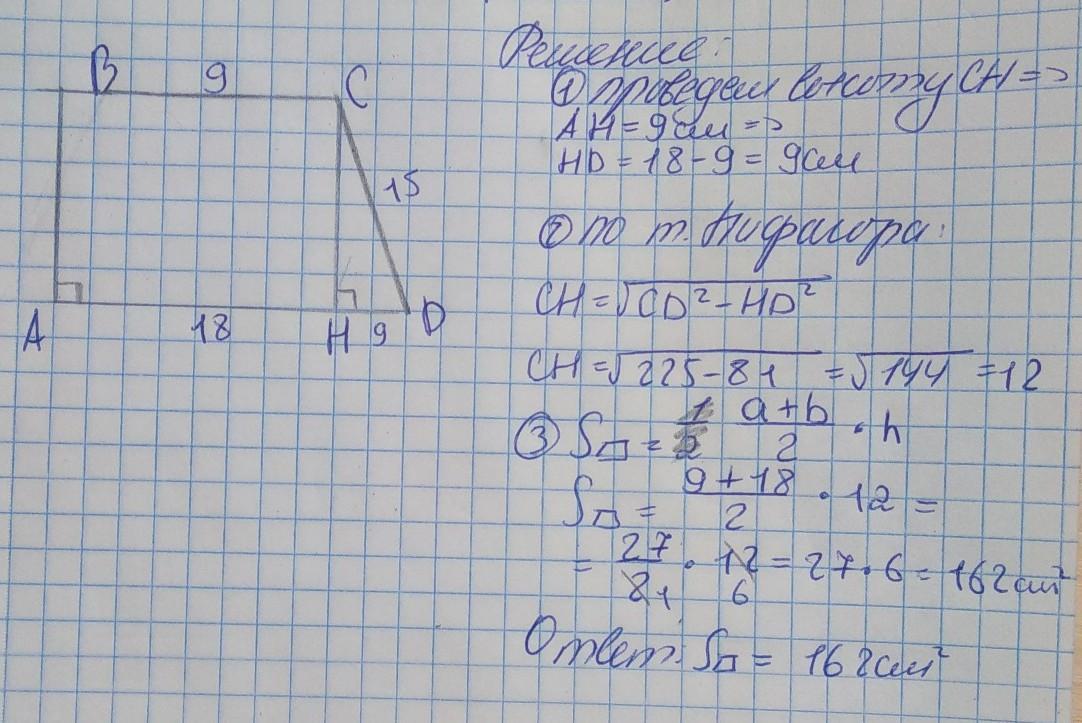 B 9 C
15
A 18 H 9 D
Решение:
① проведем высоту CH =>
AH = 9см =>
HD = 18 - 9 = 9см
② по т. Пифагора:
CH = √CD² - HD²
CH = √225 - 81 = √144 = 12
③ S▱ = a + b / 2 · h
S▱ = 9 + 18 / 2 · 12 =
= 27 / 2 1 · 12 6 = 27 · 6 = 162см²
Ответ: S▱ = 162см²